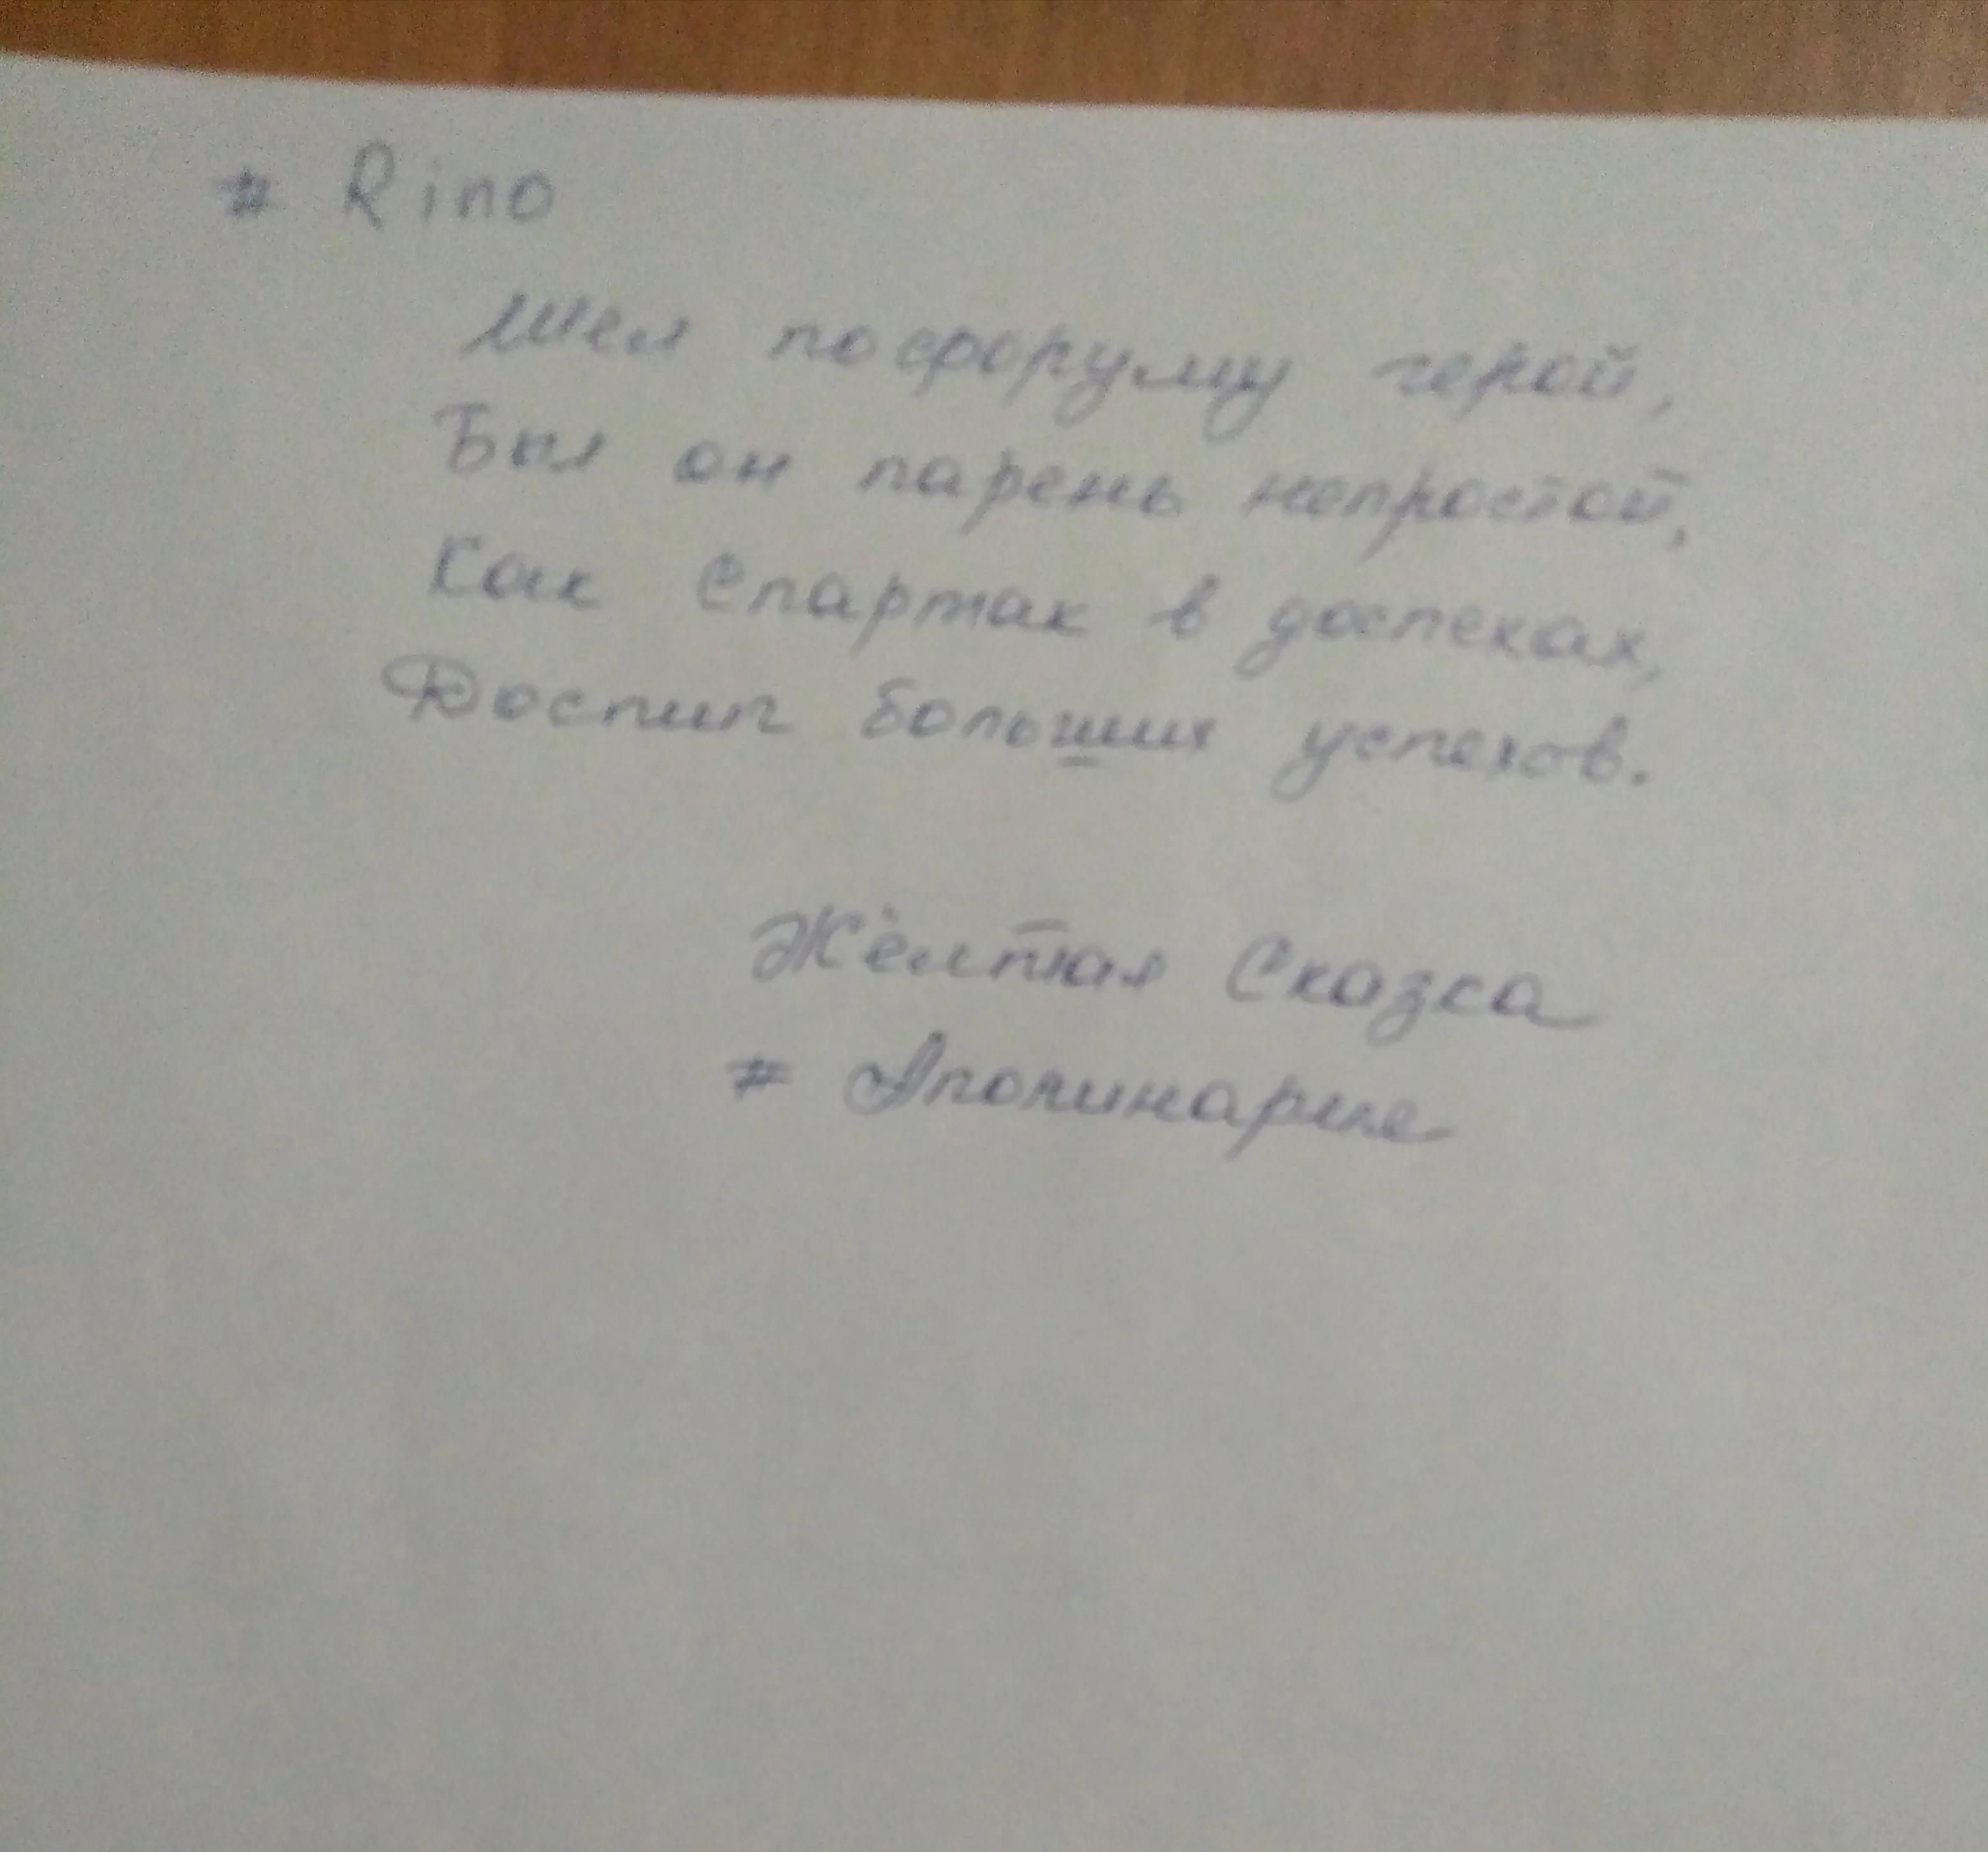 # Rino
Шел по форуму герой,
Был он парень непростой,
Как Спартак в доспехах,
Достиг больших успехов.
Жёлтая Сказка
# Аполинария